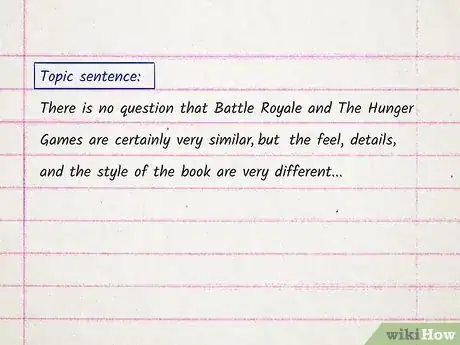 Topic sentence:
There is no question that Battle Royale and The Hunger
Games are certainly very similar, but the feel, details,
and the style of the book are very different...
wikiHow